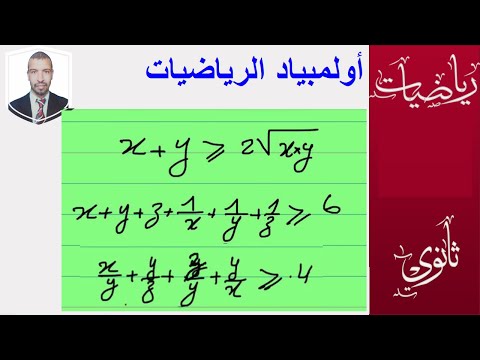 أولمبياد الرياضيات
رياضيات
x + y ≥ 2√x×y
x + y + z + 1/x + 1/y + 1/z ≥ 6
x/y + y/z + z/y + y/x ≥ 4
ثانوي